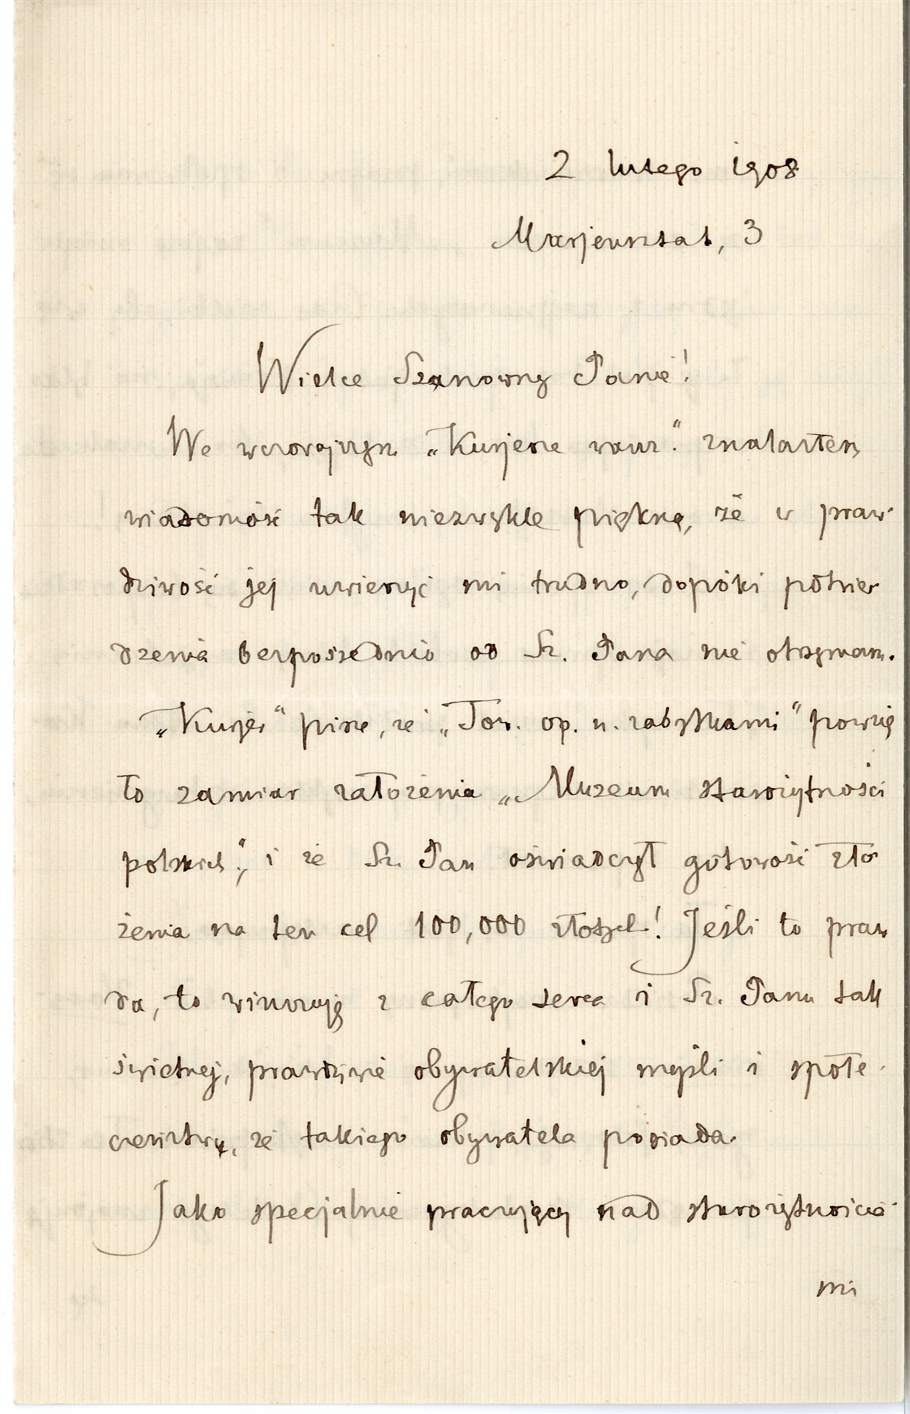 2 lutego 1908
Marjensztat, 3
Wielce Szanowny Panie!
We wczorajszym „Kurjerze warsz.” znalazłem
wiadomość tak niezwykle piękną, że w praw-
dziwość jej uwierzyć mi trudno, dopóki potwier
dzenia bezpośrednio od Sz. Pana nie otrzymam.
„Kurjer” pisze, że „Tow. op. n. zabytkami” powzię
to zamiar założenia „Muzeum starożytności
polskich”, i że Sz. Pan oświadczył gotowość zło
żenia na ten cel 100,000 złotych! Jeśli to praw
da, to winszuję z całego serca i Sz. Panu tak
świetnej, prawdziwie obywatelskiej myśli i społe-
czeństwu, że takiego obywatela posiada.
Jako specjalnie pracujący nad starożytnościa-
mi